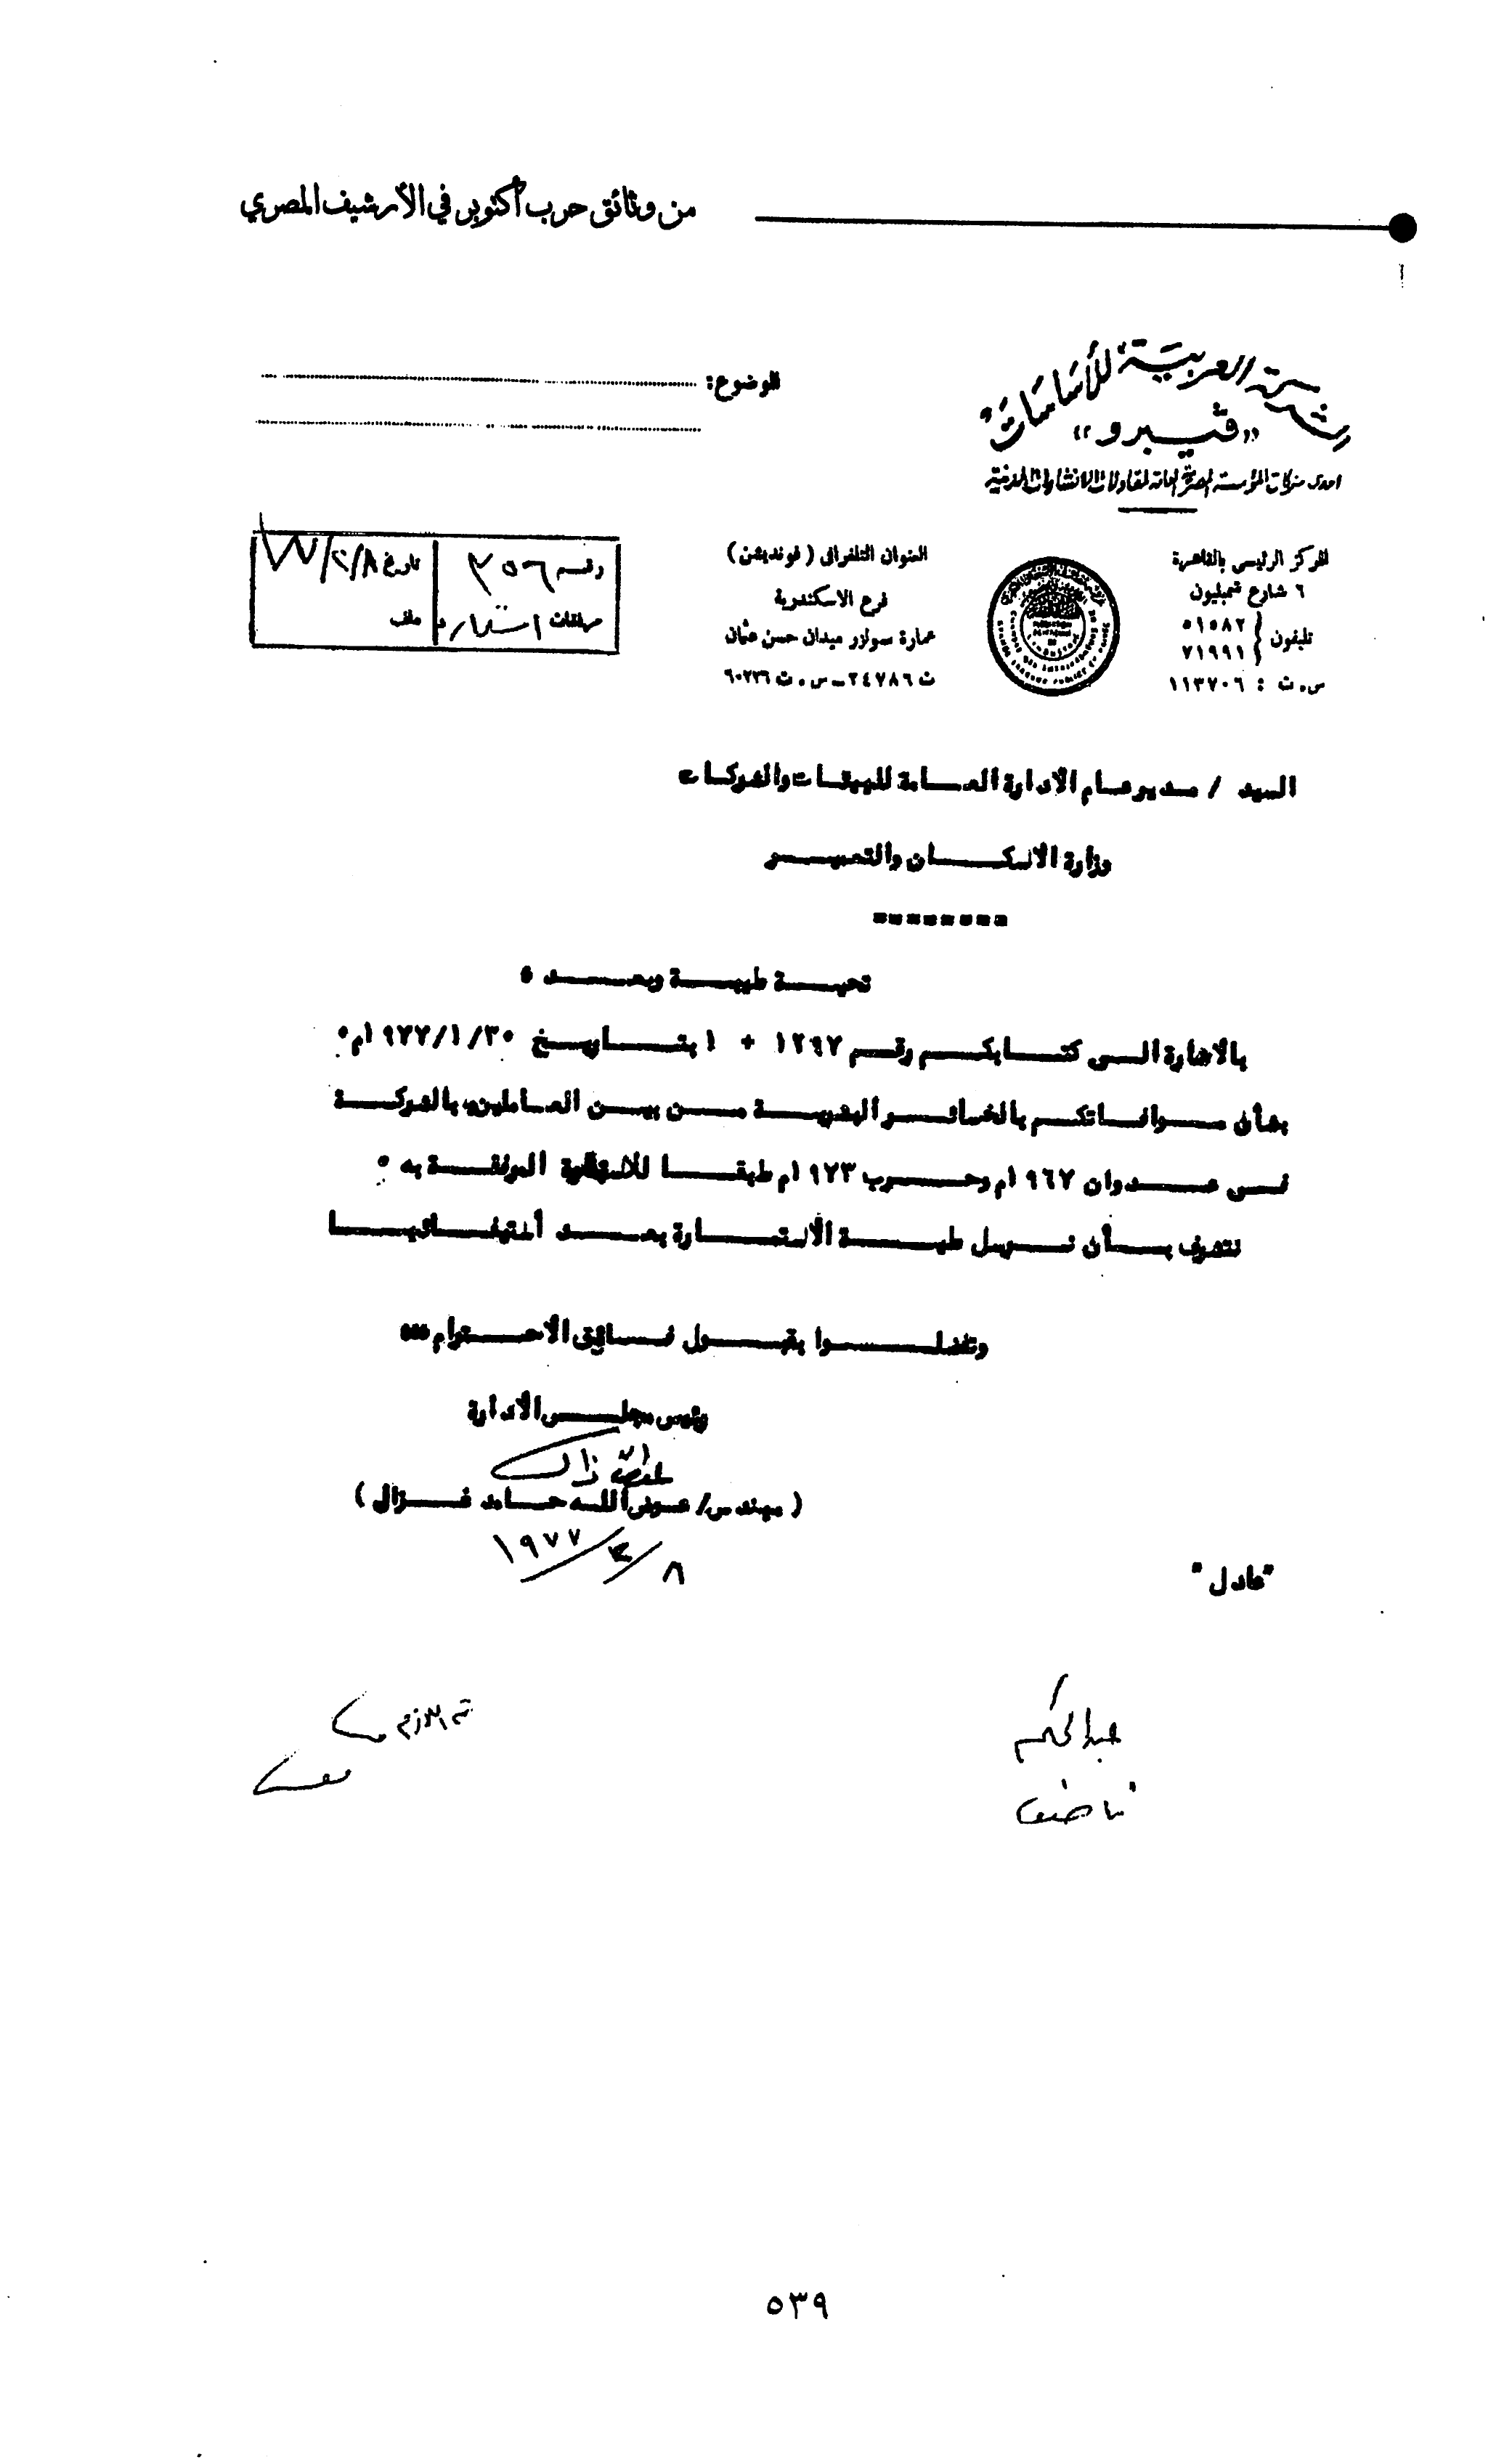 من وثائق حرب أكتوبر في الأرشيف المصري
شركة العربية للأساسات
«ڤيبرو»
احدى شركات المؤسسة المصرية العامة لمقاولات الانشاءات المدنية
الموضوع:
المركز الرئيسى بالقاهرة
٦ شارع شمبليون
تليفون ٥١٥٨٢
٧١٩٩١
س.ت : ١١٣٧٠٦
العنوان التلغرافى ( فونديشن )
فرع الاسكندرية
عمارة سولار ميدان حسن عثمان
ت ٢٤٧٨٦ ــ س.ت ٩٠٢٣٦
رقم ٣٥٦
تاريخ ٨/٢/٧٧
مرفقات استمارة
ملف
السيد / مدير عام الادارة العامة للهيئات والشركات
وزارة الاسكان والتعمير
========
تحية طيبة وبعد ،
بالاشارة الى كتابكم رقم ١٢٩٧ + ١ بتاريخ ١٩٧٧/١/٣٠م.
بشأن موافاتكم بالخسائر البشرية من بين العاملين بالشركة
فى عدوان ١٩٦٧م وحرب ١٩٧٣م طبقا للاستمارة المرفقة به .
نتشرف بأن نرسل طيه الاستمارة بعد استيفائها
وتفضلوا بقبول فائق الاحترام ،،،
رئيس مجلس الادارة
( مهندس/ عوض الله حامد غزال )
٨/٢/١٩٧٧
"عادل"
عبدالحكم
تم اللازم
٥٣٩